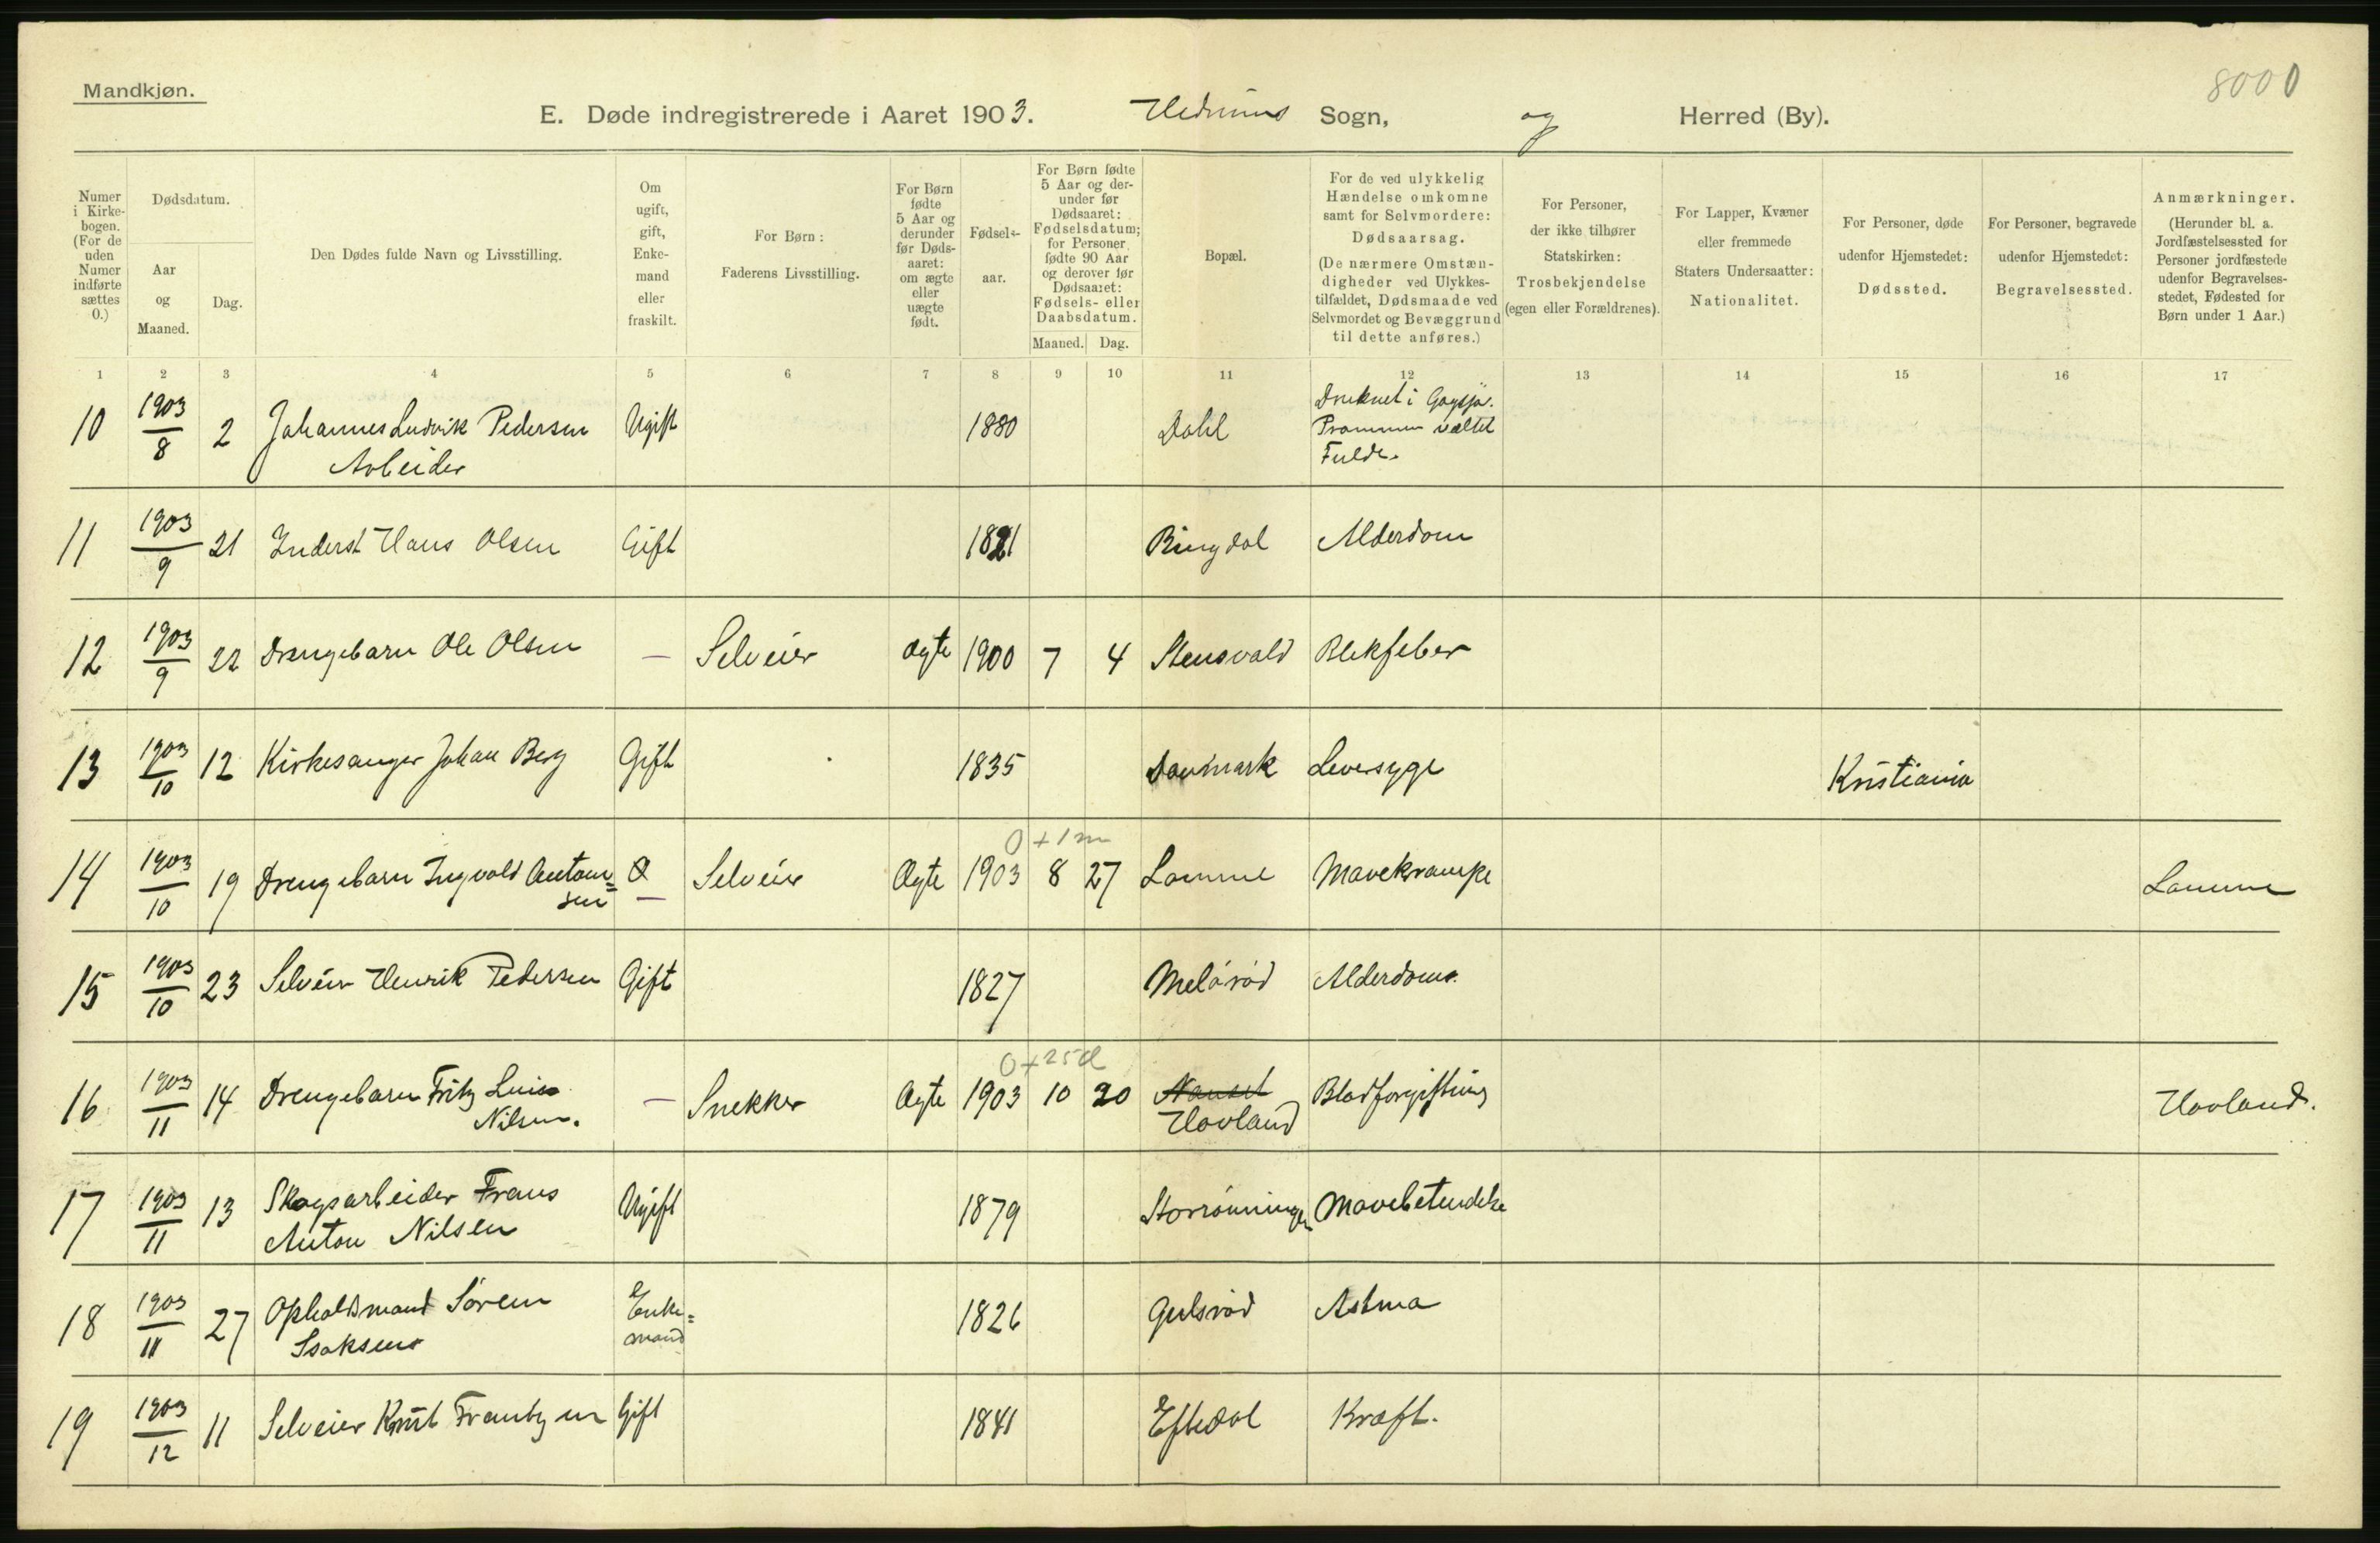 Mandkjøn.
8000
E. Døde indregistrerede i Aaret 1903. Hedrums Sogn, og Herred (By).
Numer i Kirkebogen. (For de uden Numer indførte sættes 0.)
Dødsdatum.
Aar og Maaned.
Dag.
Den Dødes fulde Navn og Livsstilling.
Om ugift, gift, Enkemand eller fraskilt.
For Børn: Faderens Livsstilling.
For Børn fødte 5 Aar og derunder før Dødsaaret: om ægte eller uægte født.
Fødselsaar.
For Børn fødte 5 Aar og derunder før Dødsaaret: Fødselsdatum; for Personer fødte 90 Aar og derover før Dødsaaret: Fødsels- eller Daabsdatum.
Maaned. Dag.
Bopæl.
For de ved ulykkelig Hændelse omkomne samt for Selvmordere: Dødsaarsag. (De nærmere Omstændigheder ved Ulykkestilfældet, Dødsmaade ved Selvmordet og Bevæggrund til dette anføres.)
For Personer, der ikke tilhører Statskirken: Trosbekjendelse (egen eller Forældrenes).
For Lapper, Kvæner eller fremmede Staters Undersaatter: Nationalitet.
For Personer, døde udenfor Hjemstedet: Dødssted.
For Personer, begravede udenfor Hjemstedet: Begravelsessted.
Anmærkninger. (Herunder bl. a. Jordfæstelsessted for Personer jordfæstede udenfor Begravelsesstedet, Fødested for Børn under 1 Aar.)
1 2 3 4 5 6 7 8 9 10 11 12 13 14 15 16 17
10 1903/8 2 Johannes Ludvik Pedersen Arbeider Ugift 1880 Dahl Druknet i Prammen væltet Fulde.
11 1903/9 21 Inderst Hans Olsen Gift 1821 Ringdal Alderdom
12 1903/9 22 Drengebarn Ole Olsen — Selveier ægte 1900 7 4 Stensvald Blekfeber
13 1903/10 12 Kirkesanger Johan Berg Gift 1835 Danmark Leversyge Kristiania
0 + 1 m
14 1903/10 19 Drengebarn Ingvald Antonsen — Selveier Ægte 1903 8 27 Lamme Mavekrampe Lamme
15 1903/10 23 Selveier Henrik Pedersen Gift 1827 Meløröd Alderdoms.
0 + 25 d
16 1903/11 14 Drengebarn Fritz Nilsen. — Snekker Ægte 1903 10 20 Nanset Hovland Blodforgiftning Hovland.
17 1903/11 13 Skogsarbeider Frans Anton Nilsen Ugift 1879 Storrönningen Mavebetendelse
18 1903/11 27 Opholdsmand Sören Isaksen Enkemand 1826 Gulsröd Astma
19 1903/12 11 Selveier Knut Frantzen Gift 1841 Eftedal Kræft.